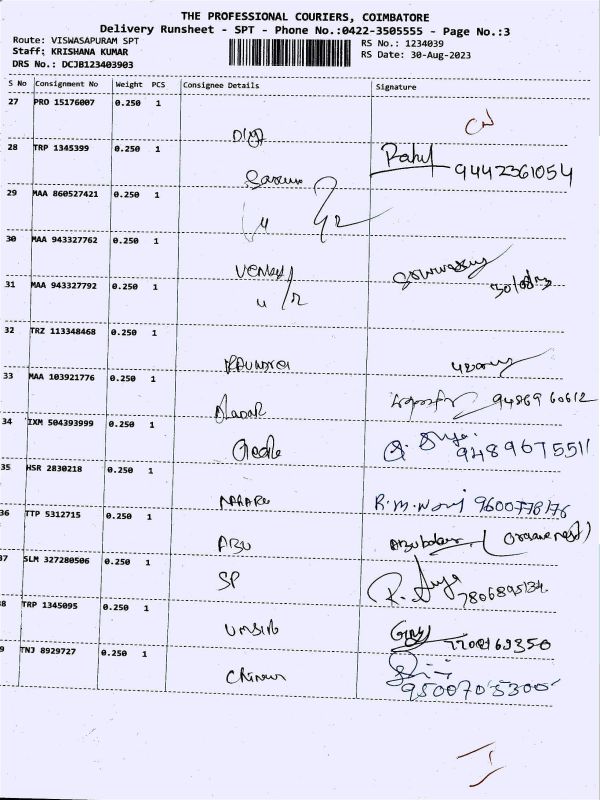 THE PROFESSIONAL COURIERS, COIMBATORE
Delivery Runsheet - SPT - Phone No.:0422-3505555 - Page No.:3
Route: VISWASAPURAM SPT
Staff: KRISHANA KUMAR
DRS No.: DCJB123403903
RS No.: 1234039
RS Date: 30-Aug-2023
S No Consignment No Weight PCS Consignee Details Signature
27 PRO 15176007 0.250 1
28 TRP 1345399 0.250 1 Rahul 9442361054
29 MAA 860527421 0.250 1
30 MAA 943327762 0.250 1
31 MAA 943327792 0.250 1
32 TRZ 113348468 0.250 1
33 MAA 103921776 0.250 1 94869 60612
34 IXM 504393999 0.250 1 9489675511
35 HSR 2830218 0.250 1 R.M. 9600778176
36 TTP 5312715 0.250 1 ABU
37 SLM 327280506 0.250 1 SP 7806895134
8 TRP 1345095 0.250 1
9 TNJ 8929727 0.250 1 9500705300